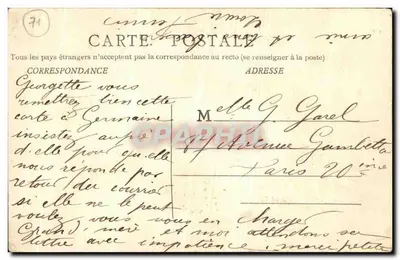 71
amie
CARTE POSTALE
Tous les pays étrangers n'acceptent pas la correspondance au recto (se renseigner à la poste)
CORRESPONDANCE
ADRESSE
Georgette vous
remettrez bien cette
carte à Germaine
insistez auprès
d'elle pour qu'elle
nous réponde par
retour du courrier
si elle ne le peut
voulez vous vous en charger
Grand' mère et moi attendons sa
lettre avec impatience, merci petite
Melle G Garel
Avenue Gambetta
Paris 20ème